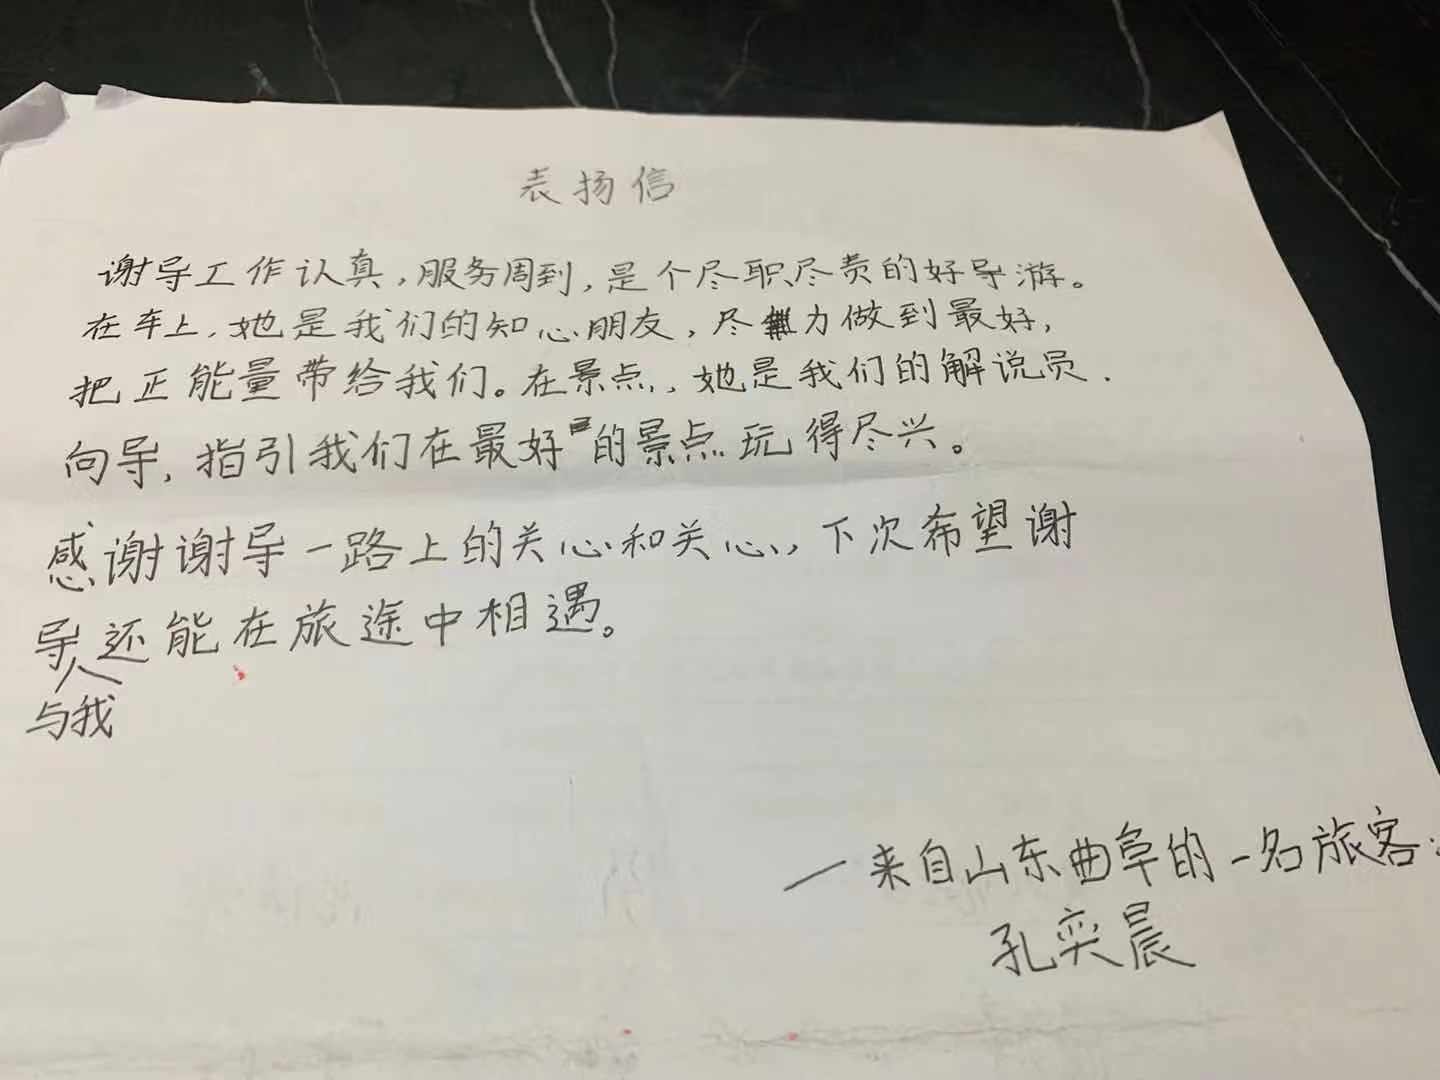 表扬信
谢导工作认真,服务周到,是个尽职尽责的好导游。
在车上,她是我们的知心朋友,尽力做到最好,
把正能量带给我们。在景点,她是我们的解说员.
向导,指引我们在最好的景点玩得尽兴。
感谢谢导一路上的关心和关心,下次希望谢
导还能在旅途中相遇。
与我
一来自山东曲阜的一名旅客:
孔奕晨